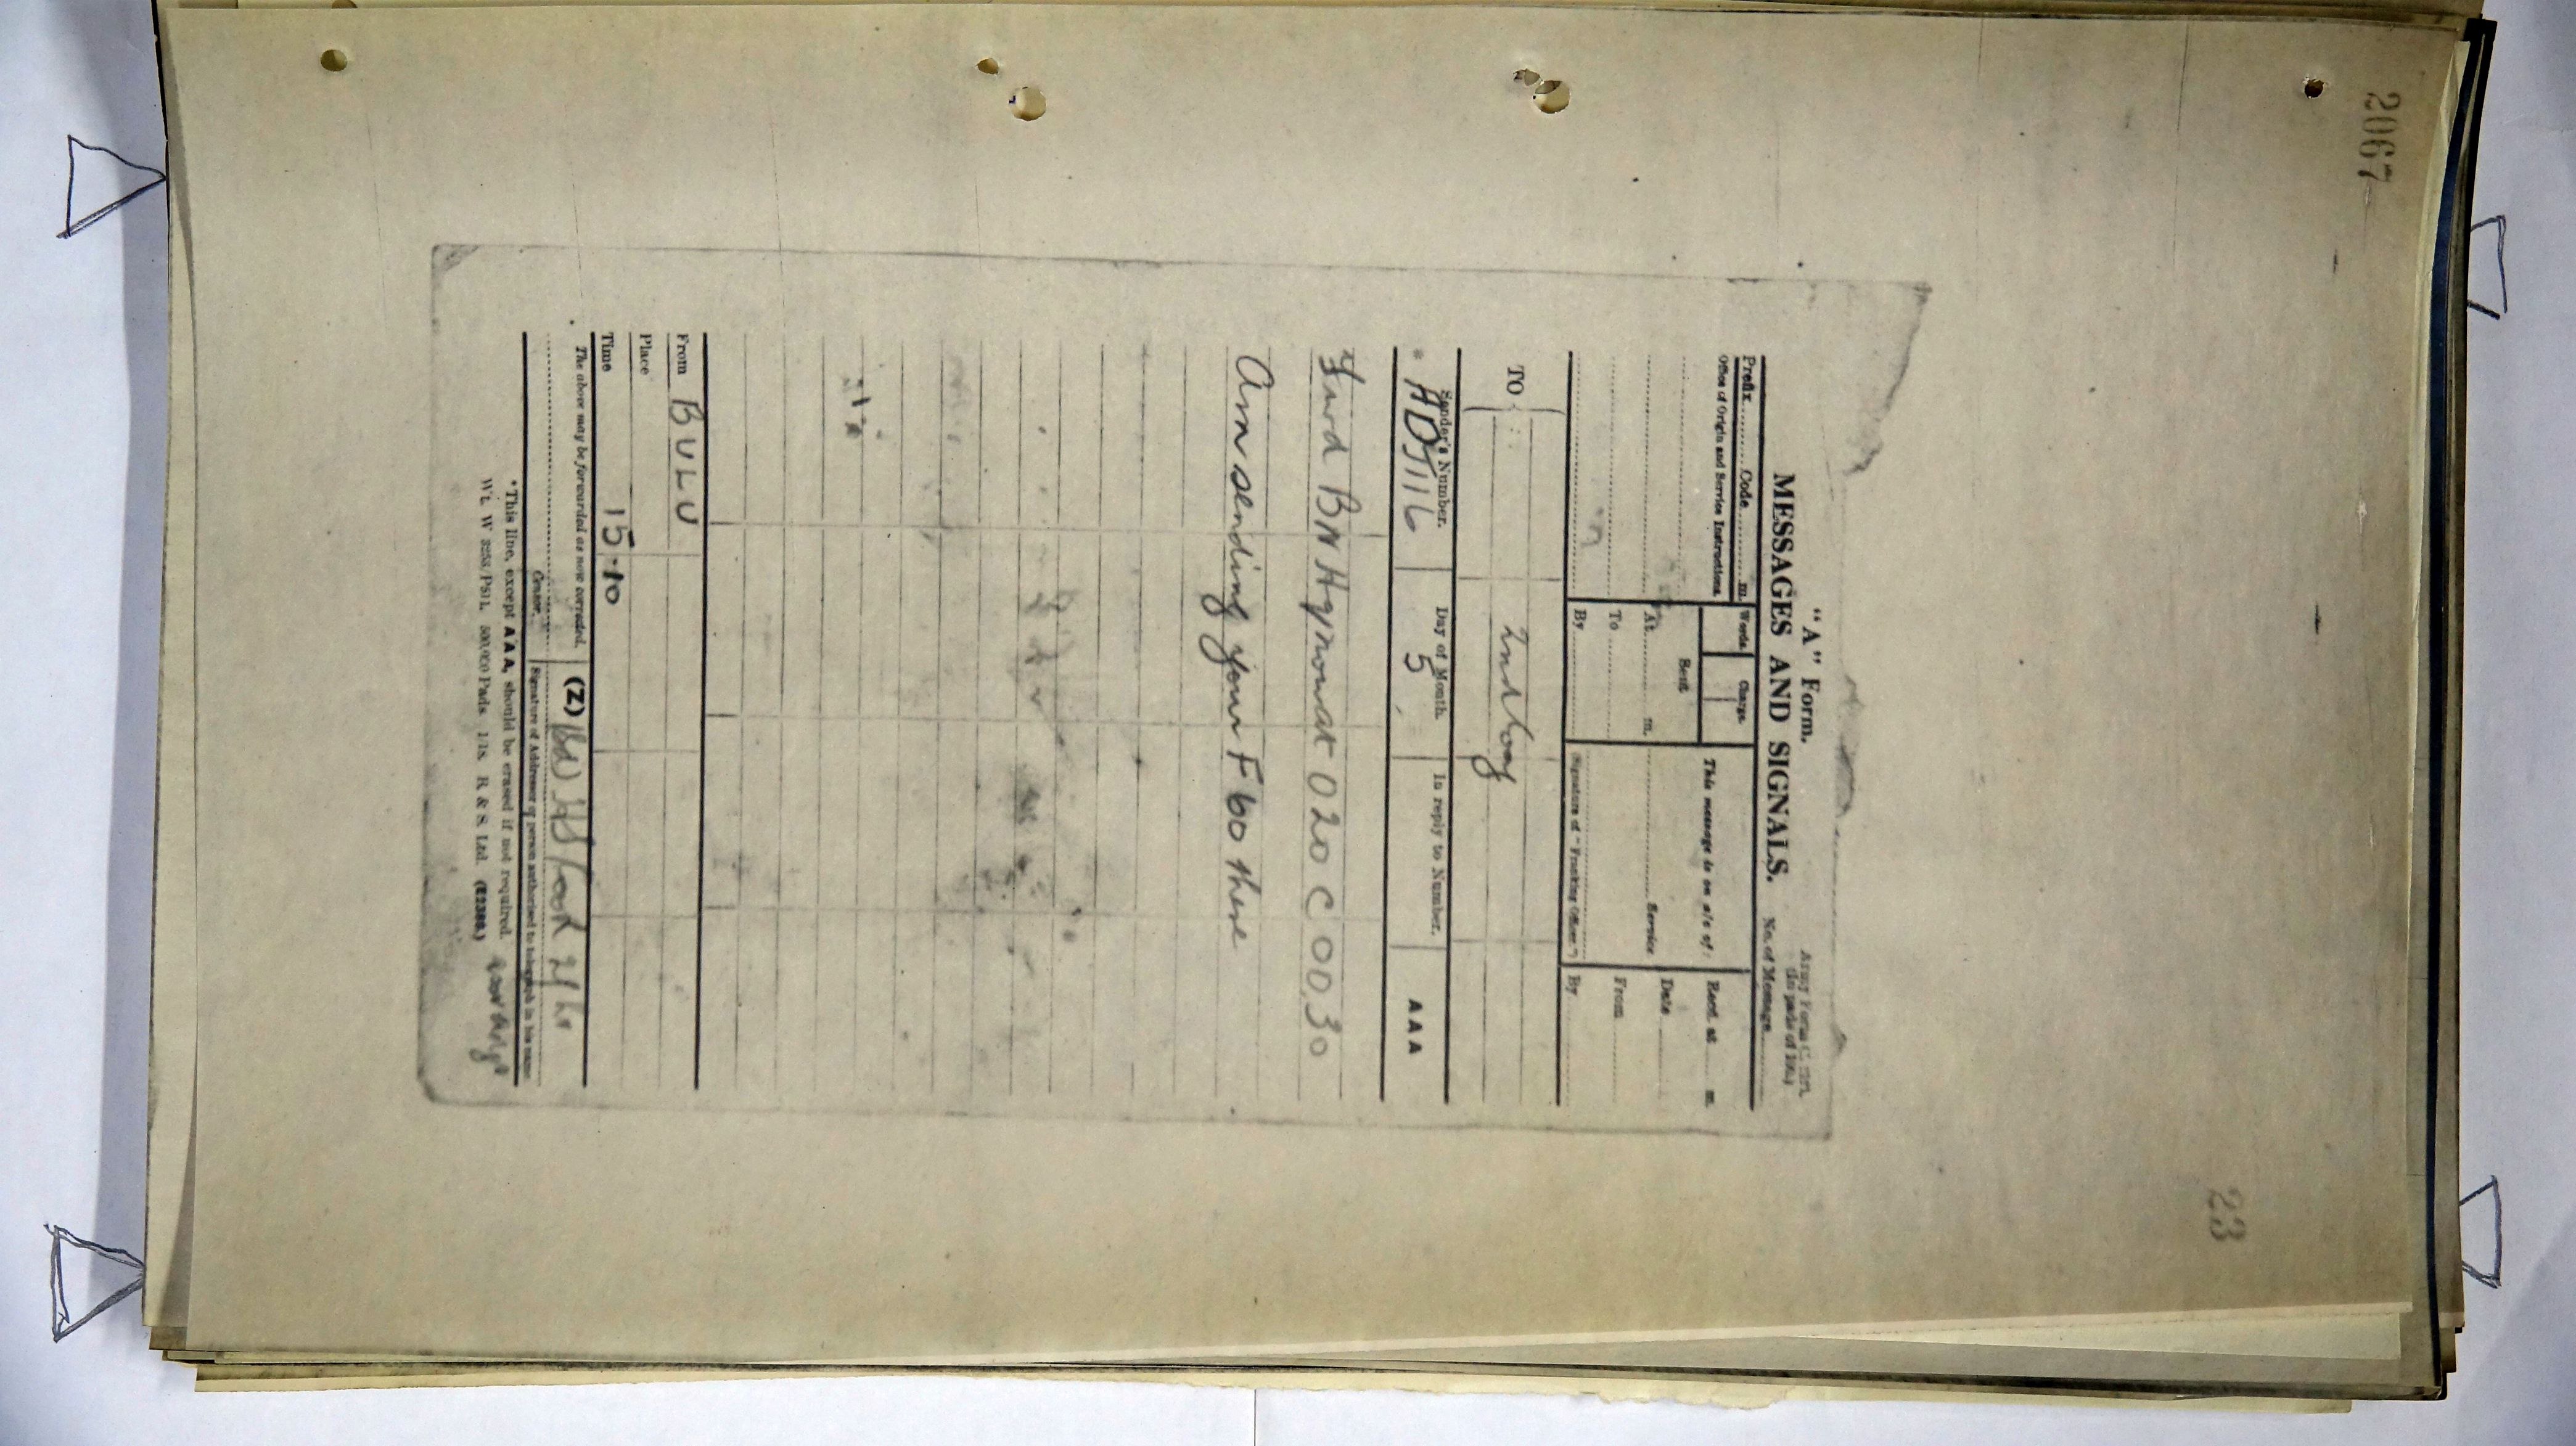 2067
23
"A" Form.
Army Form C. 2121.
(In pads of 100.)
MESSAGES AND SIGNALS.
No. of Message
Prefix Code m.
Words
Charge
Office of Origin and Service Instructions.
This message is on a/c of:
Recd. at m.
Sent
Date
At m.
Service
From
To
By
Signature of "Franking Officer."
By
TO
2nd Loy
Sender's Number.
Day of Month.
In reply to Number.
AAA
* ADJ116
5
Fwd BN HQ now at O20 C 00.30
Am sending your F 60 there
From BULU
Place
Time 15-10
The above may be forwarded as now corrected.
(Z)
Censor.
Signature of Addressor or person authorised to telegraph in his name
*This line, except AAA, should be erased if not required.
500,000 Pads. R & S. Ltd.